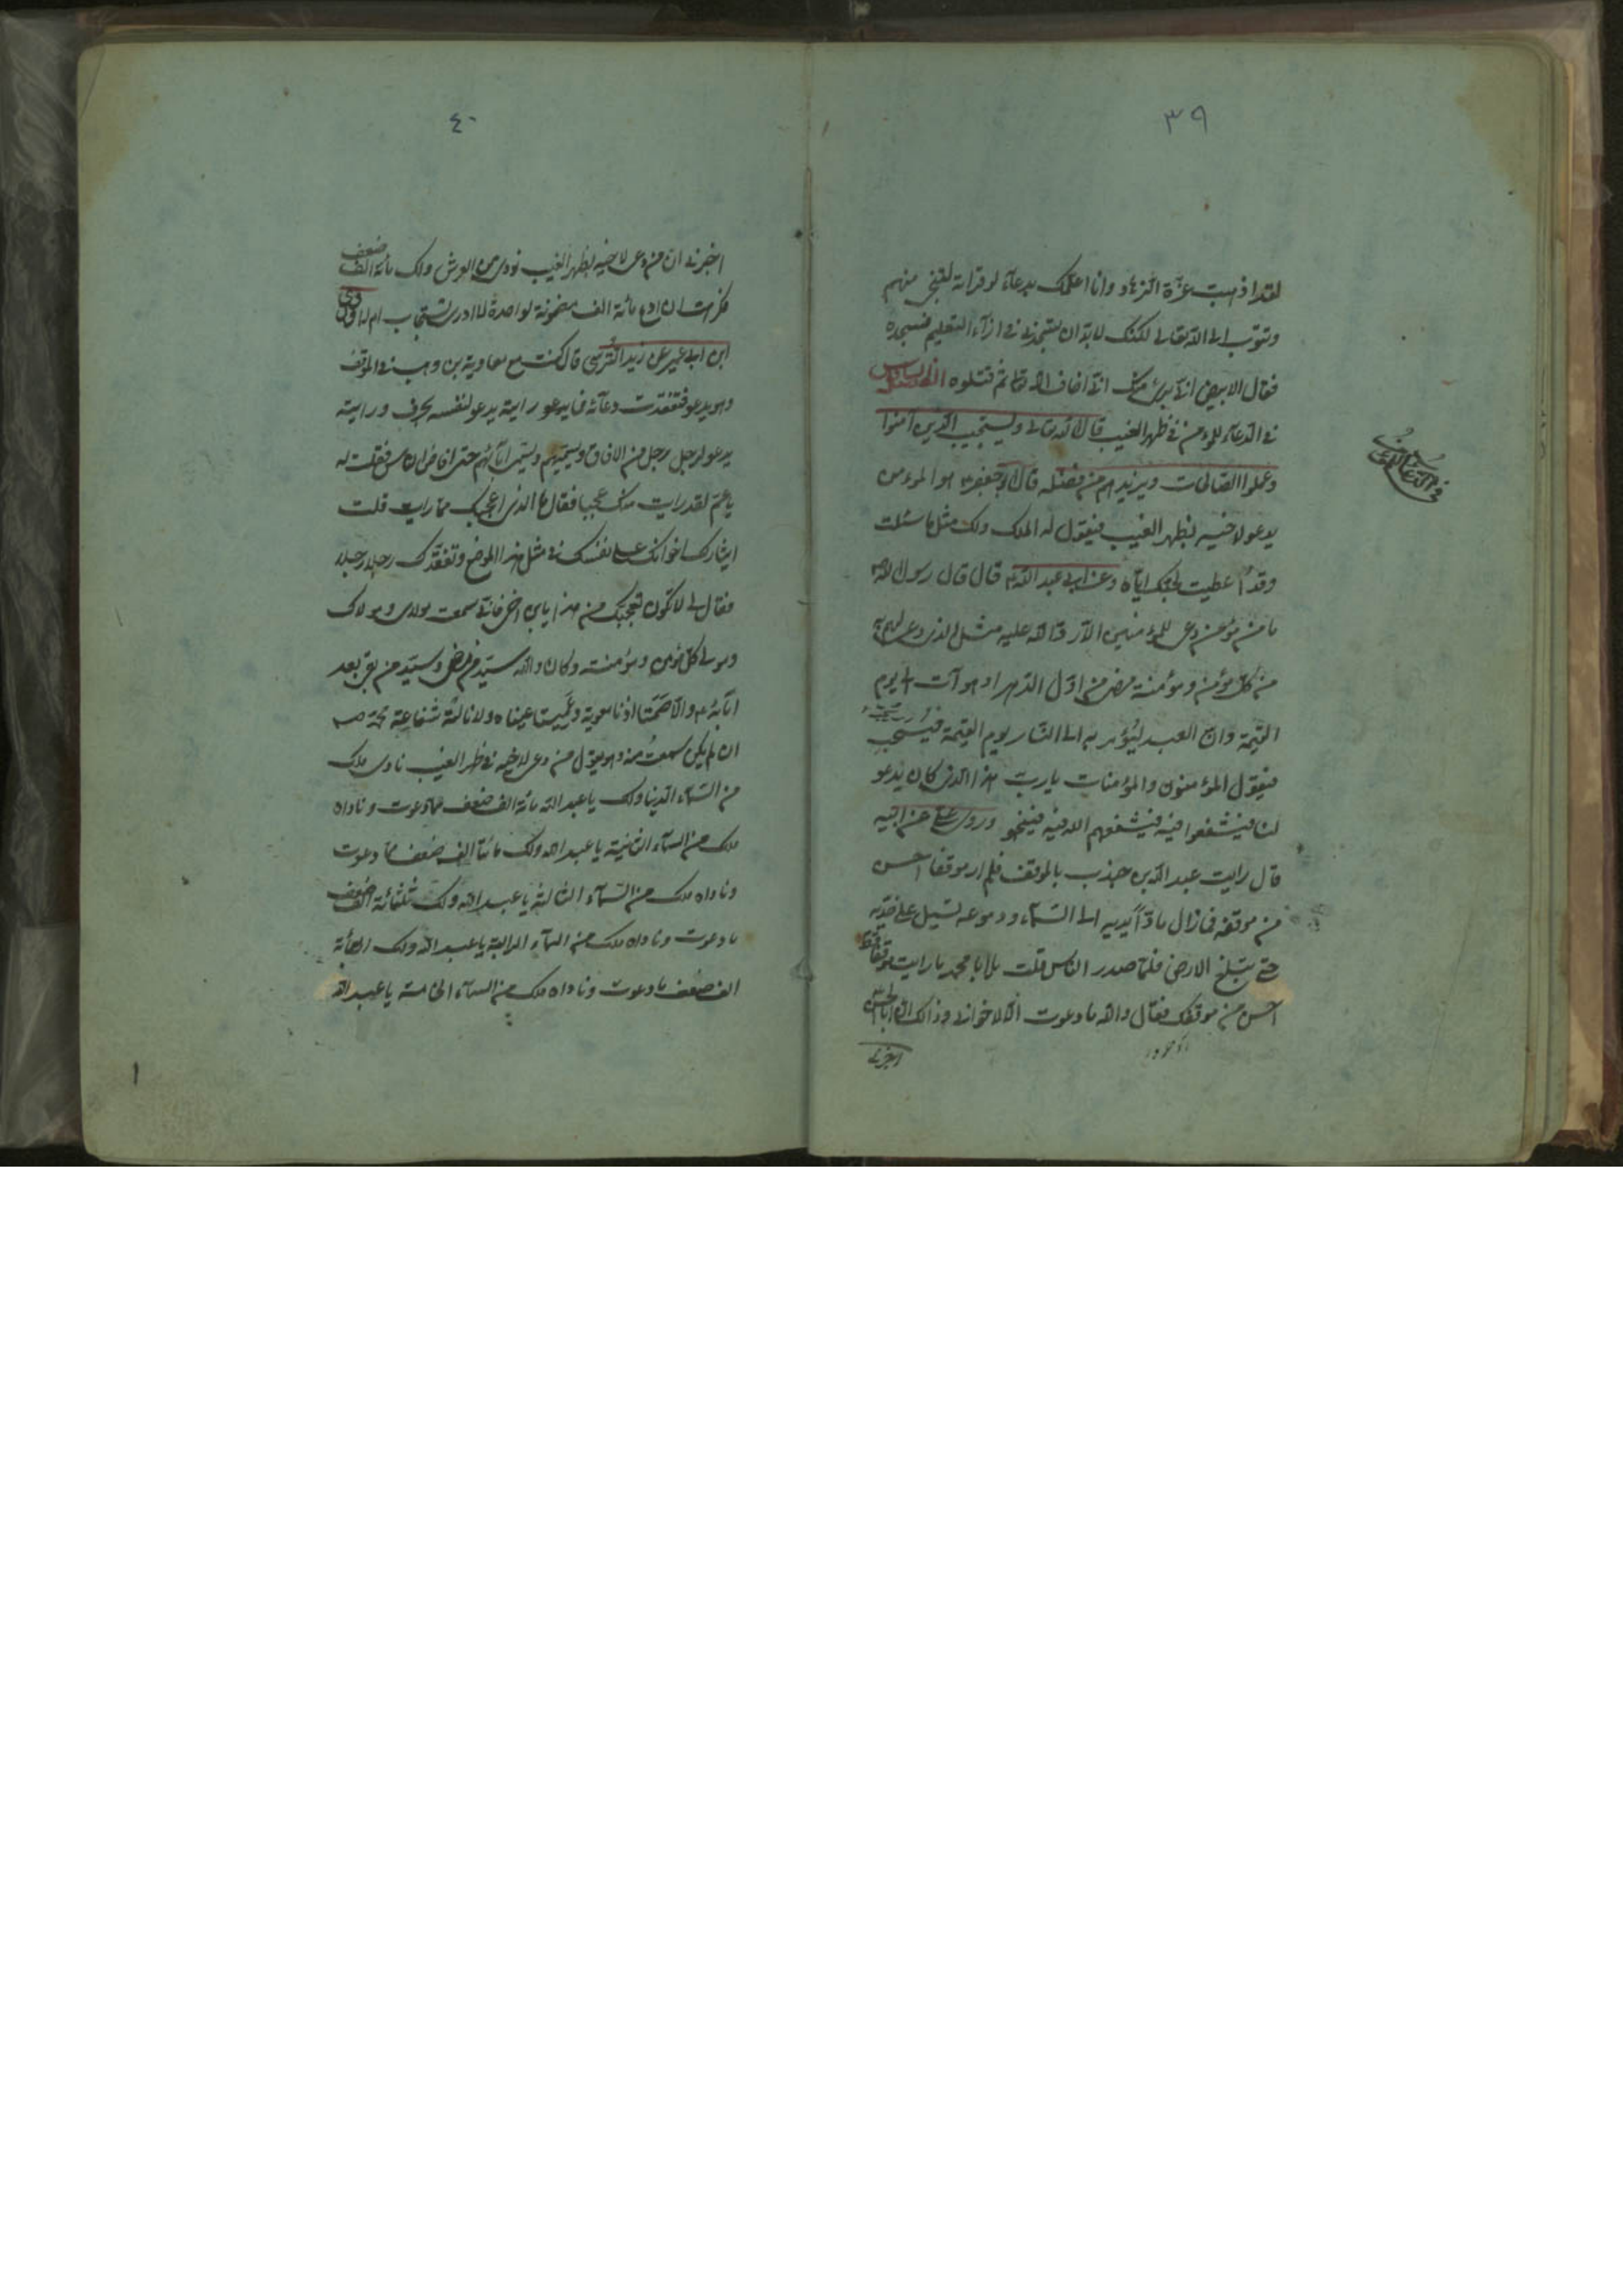 ٣٩
لقد اذهبت عزة الزهاد وانا اعلمك بدعاء لو قراته لتنجى منهم
وتتوب الى الله تعالى لكنك لابد ان تسجد لى ازاء التعليم فسجده
فقال الابيض انى برئ منك انى اخاف الله ثم قتلوه الفصل السادس
فى الدعاء للمؤمن فى ظهر الغيب قال الله تعالى ويستجيب الذين آمنوا
وعملوا الصالحات ويزيدهم من فضله قال ابو جعفر ع هو المؤمن
يدعو لاخيه بظهر الغيب فيقول له الملك ولك مثل ما سئلت
وقد اعطيت لحبك اياه وعن ابى عبد الله ع قال قال رسول الله ص
ما من مؤمن دعى للمؤمنين الا رد الله عليه مثل الذى دعى لهم به
من كل مؤمن ومؤمنة مضى من اول الدهر او هو آت الى يوم
القيمة وان العبد ليؤمر به الى النار يوم القيمة فيسحب
فيقول المؤمنون والمؤمنات يارب هذا الذى كان يدعو
لنا فيشفعوا فيه فيشفعهم الله فيه فينجو وروى على عن ابيه
قال رايت عبد الله بن جندب بالموقف فلم ار موقفا احسن
من موقفه فما زال مادّا يديه الى السماء ودموعه تسيل على خديه
حتى تبلغ الارض فلما صدر الناس قلت يا ابا محمد ما رايت موقفا قط
احسن من موقفك فقال والله ما دعوت الا لاخوانى وذالك ان ابا الحسن
اخبرنى
فى الدعاء للمؤمن
٤٠
اخبرنى ان من دعى لاخيه بظهر الغيب نودى من العرش ولك مائة الف ضعف
فكرهت ان ادع مائة الف مضمونة لواحدة لا ادرى تستجاب ام لا وروى
ابن ابى عمير عن زيد النرسى قال كنت مع معاوية بن وهب فى الموقف
وهو يدعو فتفقدت دعائه فما يدعو رايته يدعو لنفسه بحرف ورايته
يدعو لرجل رجل من الافاق ويسميهم ويسمى آبائهم حتى افاض الناس فقلت له
يا عم لقد رايت منك عجبا فقال ما الذى اعجبك مما رايت قلت
ايثارك اخوانك على نفسك فى مثل هذا الموضع وتفقدك رجلا رجلا
فقال لى لا تكون تعجبك من هذا يا بن اخى فانى سمعت مولاى ومولاك
ومولى كل مؤمن ومؤمنة وكان والله سيد من مضى وسيد من بقى بعد
آبائه ع والا صمّتا اذنا معوية وعميتا عيناه ولا نالته شفاعة محمد ص
ان لم يكن سمعت منه وهو يقول من دعى لاخيه فى ظهر الغيب نادى ملك
من السماء الدنيا ولك يا عبد الله مائة الف ضعف مما دعوت وناداه
ملك من السماء الثانية يا عبد الله ولك مائتا الف ضعف مما دعوت
وناداه ملك من السماء الثالثة يا عبد الله ولك ثلثمائة الف ضعف
ما دعوت وناداه ملك من السماء الرابعة يا عبد الله ولك اربعمائة
الف ضعف ما دعوت وناداه ملك من السماء الخامسة يا عبد الله